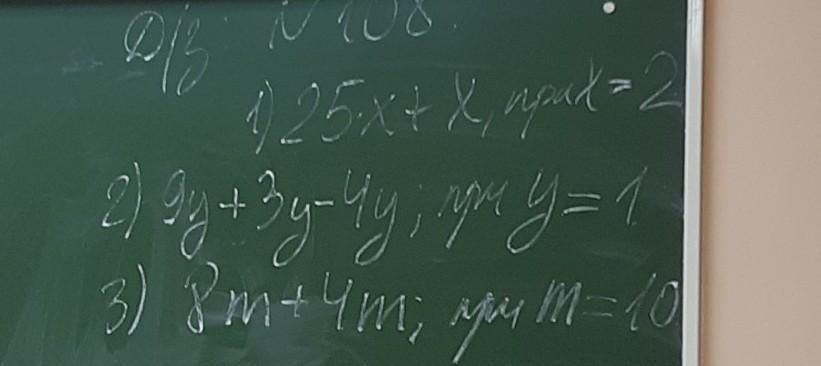 Д/з. N 108.
1) 25·x + x, при x = 2
2) 9y + 3y - 4y; при y = 1
3) 8m + 4m; при m = 10